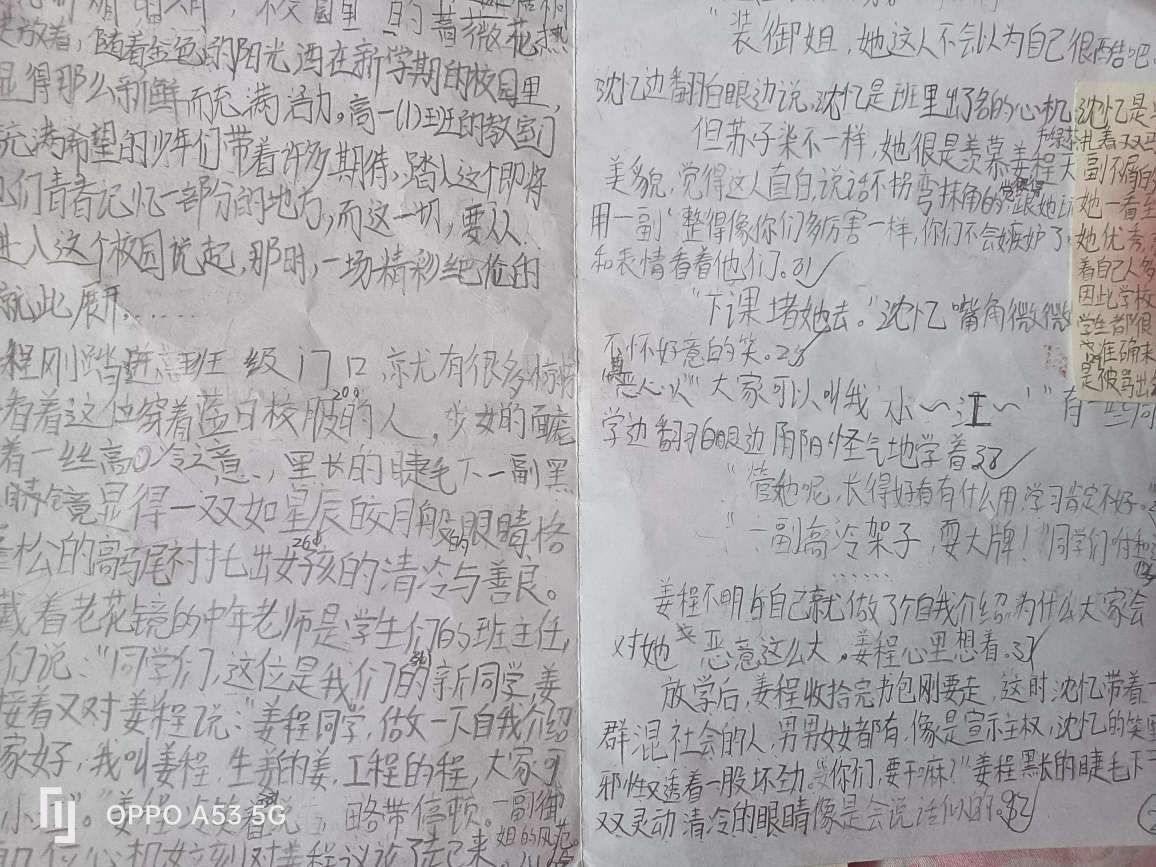 校园里的蔷薇花热
放着，随着金色的阳光洒在新学期的校园里，
显得那么新鲜而充满活力。高一(1)班的教室门
充满希望的少年们带着许多期待，踏入这个即将
们青春记忆一部分的地方，而这一切，要从
进入这个校园说起，那时，一场精彩绝伦的
就此展开。……
程刚踏进高班级门口，就有很多
看着这位穿着蓝白校服的人，少女的面庞
着一丝高冷之意，黑长的睫毛下一副黑
睛镜显得一双如星辰皎月般的眼睛格
松的高马尾衬托出女孩的清冷与善良。
戴着老花镜的中年老师是学生们的班主任，
们说："同学们，这位是我们的新同学，姜
接着又对姜程说："姜程同学，做一下自我介绍
家好，我叫姜程，生姜的姜，工程的程，大家可
小江"。略带停顿。一副御
姐的风范
几位心机女孩对姜程议论了起来。
OPPO A53 5G
"装御姐，她这人不会以为自己很酷吧。
沈忆边翻白眼边说，沈忆是班里出了名的心机
但苏子染不一样，她很是羡慕姜程
美貌，觉得这人直白，说话不拐弯抹角的，跟她
用一副'整得像你们多厉害一样，你们不会嫉妒了
和表情看着他们。31
"下课堵她去。"沈忆嘴角微微
不怀好意的笑。23
"大家可以叫我小～江～"有一些同
学边翻白眼边阴阳怪气地学着33
"管她呢，长得好看有什么用，学习肯定不好。
"一副高冷架子，耍大牌！"同学们附和
……
姜程不明白自己就做了个自我介绍为什么大家会
对她恶意这么大。姜程心里想着。31
放学后，姜程收拾完书包刚要走，这时沈忆带着一
群混社会的人，男男女女都有，像是宣示主权，沈忆的笑里
邪性又透着一股坏劲。"你们，要干嘛？"姜程黑长的睫毛下一
双灵动清冷的眼睛像是会说话似的。32
沈忆是
绿茶，扎着双马
副不屑的
她一看至
她优秀，
着自己人多
因此学校
学生都很
准确来
是被骂出名